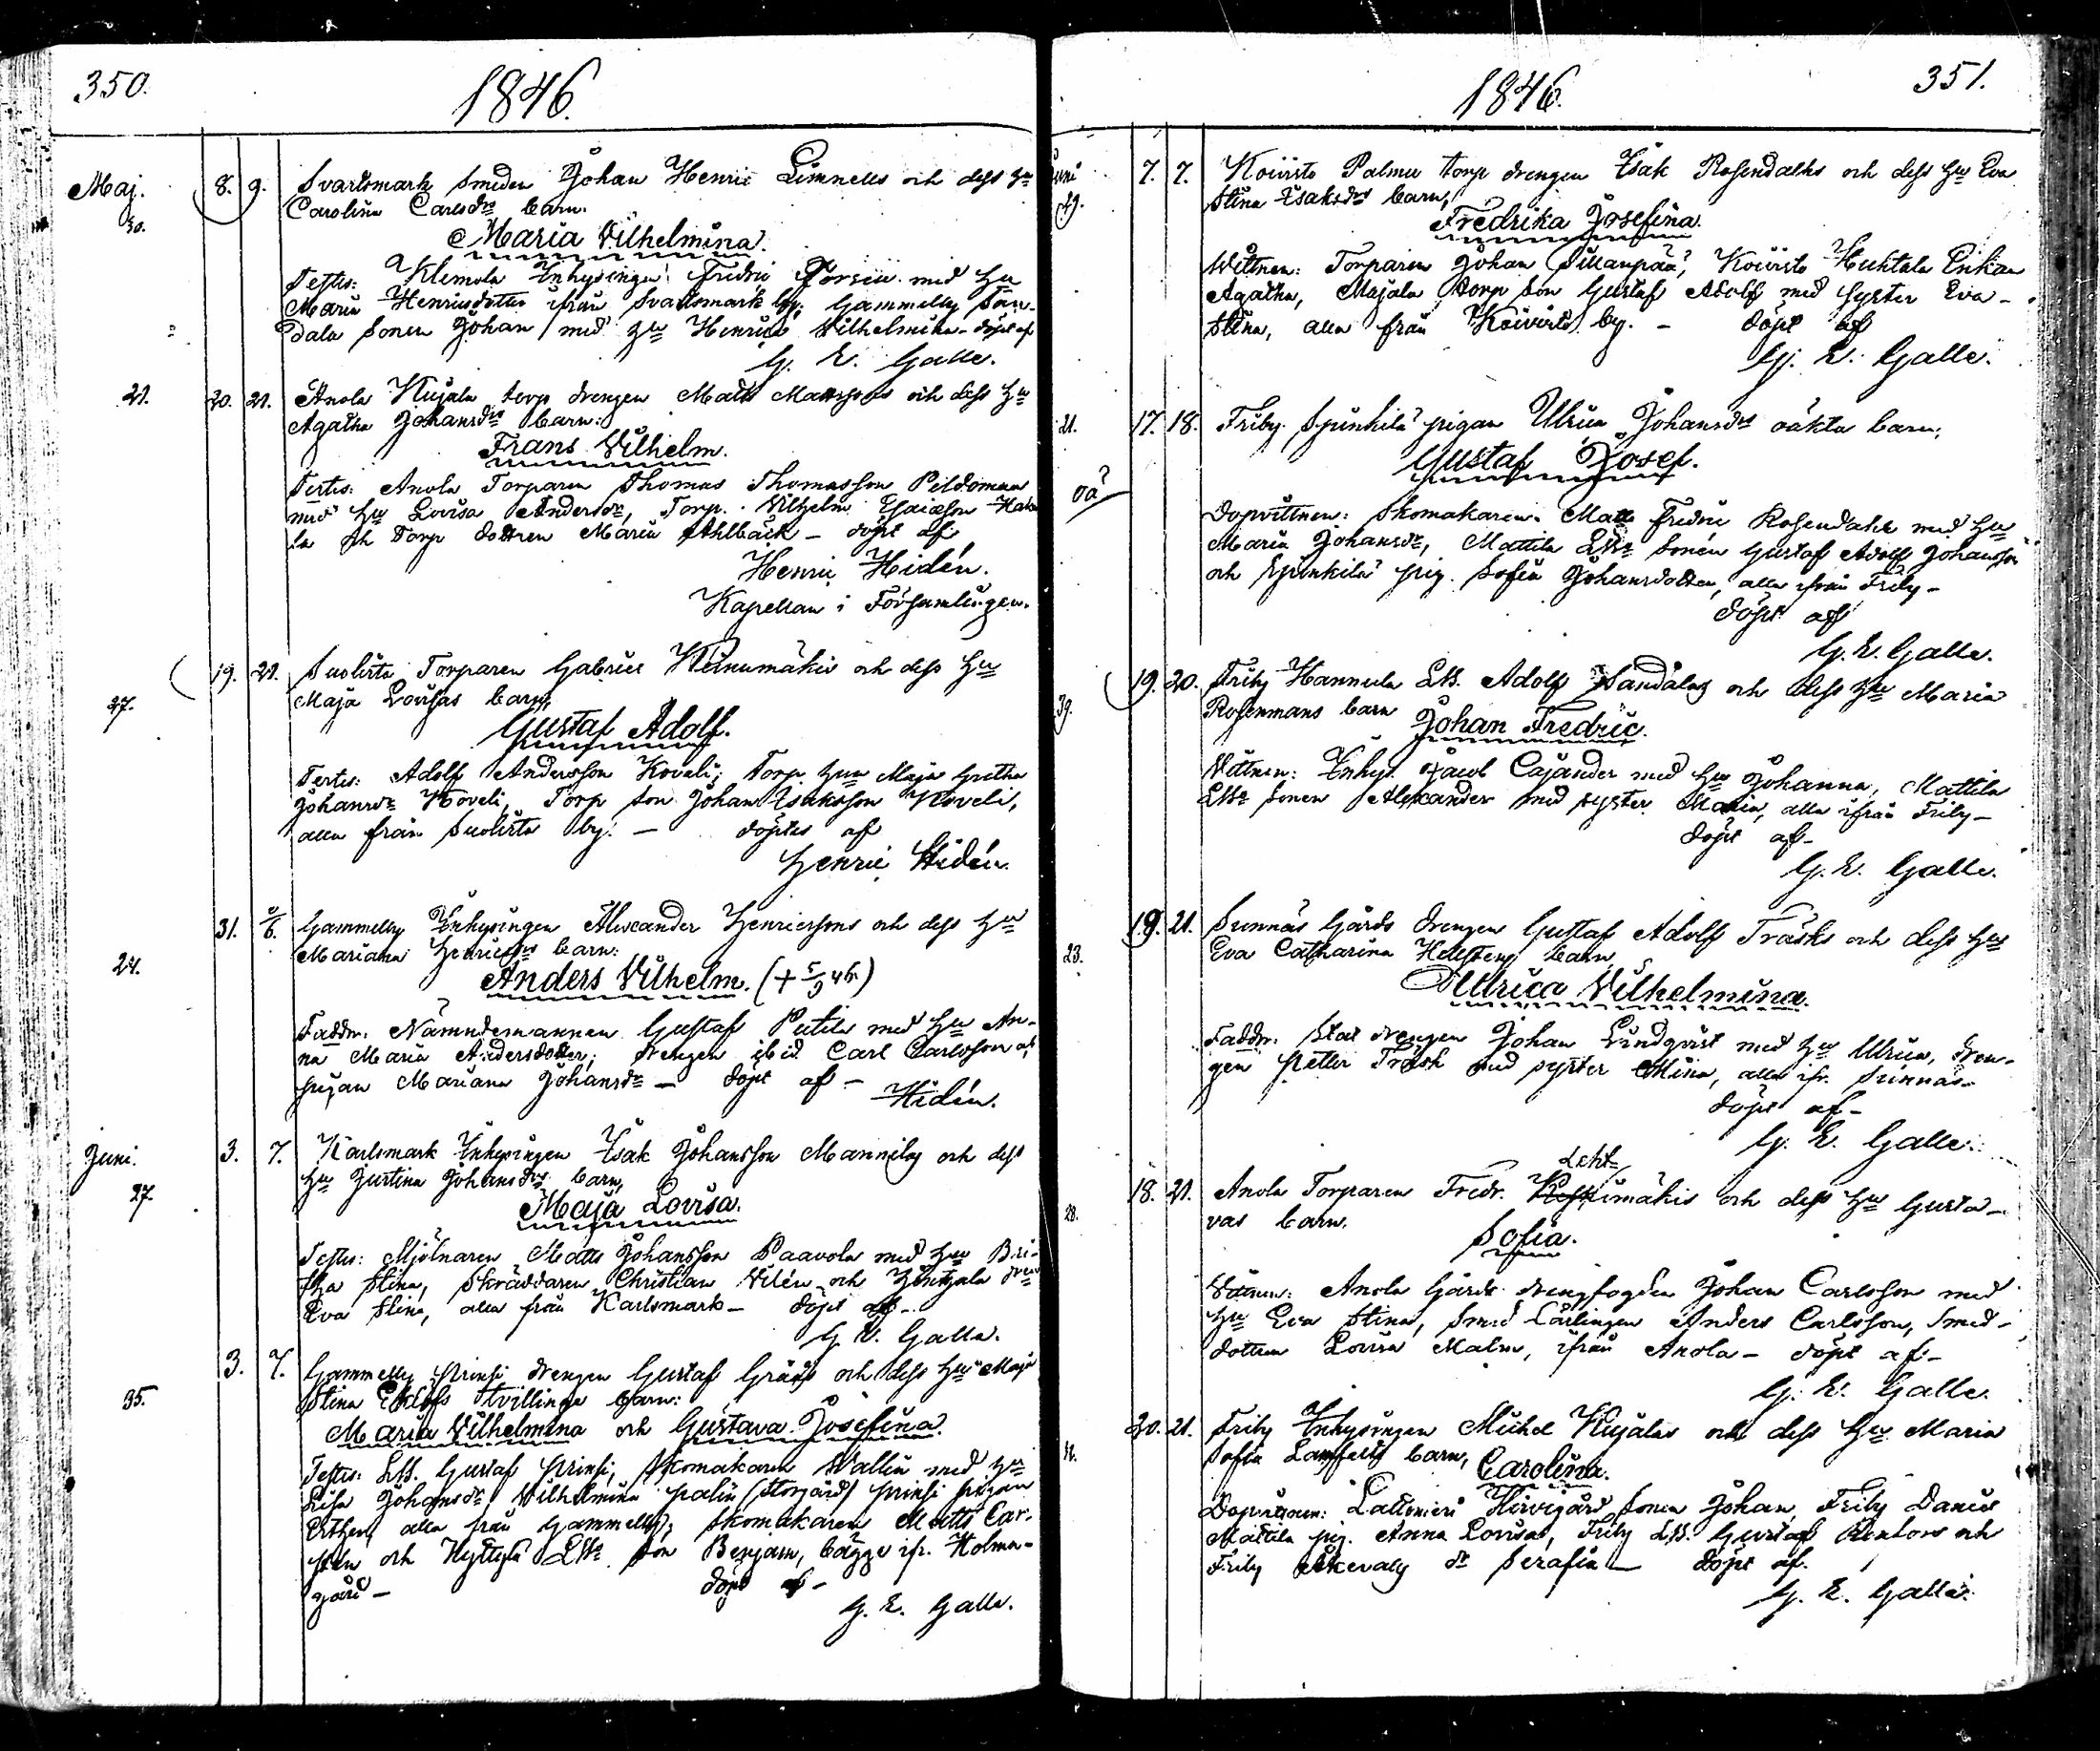 350.
1846.
Maj. 8. 9. Svartsmark Smeden Johan Henric Limnells och dess hu
30. Carolina Carlsdrs barn:
Maria Vilhelmina.
Testes: Klemola Inhysingen Fredric Forsin med hu
Maria Henricsdotter ifrån Svartsmark by; Gammelby San-
dala Sonen Johan med hu Henrica Vilhelmina - döpt af
G. E. Galle.
21. 20. 21. Anola Kujala torp drengen Matts Mattssons och dess hu
Agatha Johansdrs barn:
Frans Vilhelm.
Testes: Anola Torparen Thomas Thomasson
med hu Lovisa Andersdr, Torp. Vilhelm Esaiæson
la och Torp dottren Maria Ahlbäck - döpt af
Henric Hidén.
Kapellan i Församlingen.
19. 21. Suolista Torparen Gabriel Heinumäkis och dess hu
27. Maja Lovisas barn,
Gustaf Adolf.
Testes: Adolf Andersson Koveli; Torp. hun Maja Gretha
Johansdr Koveli, Torp Son Johan Isaksson Koveli,
alla från Suolista by. - döptes af
Henric Hidén.
31. 1/6. Gammelby Inhysingen Alexander Henricssons och dess hu
24. Mariana Henricsdrs barn:
Anders Vilhelm. (+ 5/9 46)
Faddr. Nämndemannen Gustaf Putila med hu An-
na Maria Andersdotter; drengen ibid Carl Carlsson o,
pigan Mariana Johansdr - döpt af -
Hidén.
Juni. 3. 7. Karlsmark Inhysingen Isak Johansson Mannilas och dess
27. hu Justina Johansdrs barn,
Maja Lovisa.
Testes: Mjölnaren Matts Johansson Paavola med hu Bri-
tha Stina, Skräddaren Christian Vilén och
Eva Stina, alla från Karlsmark - döpt af -
G. E. Galle.
3. 7. Gammelby Prinsi drengen Gustaf Gräns och dess hu Maja
35. Stina Eklöfs tvillinge barn:
Maria Vilhelmina och Gustava Josefina.
Testes: LB. Gustaf Prinsi, Skomakaren Wallin med hu
Lisa Johansdr, Vilhelmina Palin (Storgård) Prinsi pigan
Esther, alla från Gammelby; Skomakaren Matts Carl-
sten och Hyttylä LBs Son Benjam, bägge ifr. Holma-
gård - döpt af -
G. E. Galle.
351.
1846.
Juni 7. 7. Koivisto Palmu torp drengen Isak Rosendahls och dess hu Eva
29. Stina Isaksdrs barn,
Fredrika Josefina.
Wittnen: Torparen Johan Sillanpää, Koivisto Huhtala Enkan
Agatha, Majala torp Son Gustaf Adolf med syster Eva-
Stina, alla från Koivisto by. - döpt af
G. E. Galle.
21. 17. 18. Friby Spinkilä pigan Ulrica Johansdrs oäkta barn,
Gustaf Josef.
oä
Dopvittnen: Skomakaren Matts Fredric Rosendahl med hu
Maria Johansdr, Mattila LBs Sonen Gustaf Adolf Johansson
och Spinkilä pig. Sofia Johansdotter, alla ifrån Friby -
döpt af
G. E. Galle.
19. 20. Friby Hannula LB. Adolf Sandalas och dess hu Maria
39. Rosenmans barn Johan Fredric.
Vittnen: Inhys. Jacob Cajander med hu Johanna, Mattila
LBs Sonen Alexander med syster Maria, alla ifrån Friby -
döpt af -
G. E. Galle.
19. 21. Sunnäs Gårds drengen Gustaf Adolf Träsks och dess hu
23. Eva Catharina Hellstens barn,
Ulrica Vilhelmina.
Faddr. Stat drengen Johan Lindqvist med hu Ulrica, dren-
gen Petter Träsk med syster Mina, alla ifr. Sunnäs -
döpt af -
G. E. Galle.
Leht-
18. 21. Anola Torparen Fredr. imäkis och dess hu Gusta-
28. vas barn.
Sofia.
Vittnen: Anola Gårds drengfogden Johan Carlsson med
hu Eva Stina, Smed Lärlingen Anders Carlsson, Smed-
dottren Lovisa Malm, ifrån Anola - döpt af -
G. E. Galle.
20. 21. Friby Inhysingen Michel Kujalas och dess hu Maria
Sofia barn, Carolina.
Dopvittnen: Hirvigård Sonen Johan, Friby Daniel
Mattila pig. Anna Lovisa, Friby LB. Gustaf och
Friby Äkeväly dr Serafia - döpt af.
G. E. Galle.